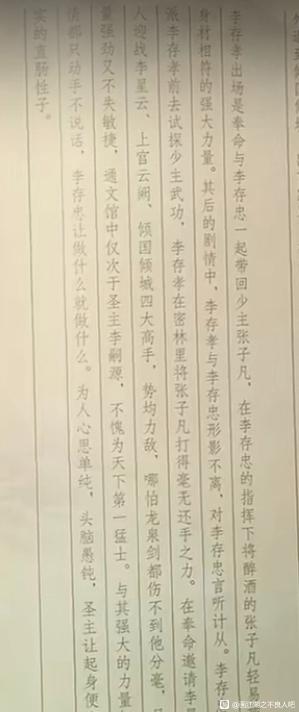 李存孝出场是奉命与李存忠一起带回少主张子凡，在李存忠的指挥下将醉酒的张子凡轻易
身材相符的强大力量。其后的剧情中，李存孝与李存忠形影不离，对李存忠言听计从。李存
派李存孝前去试探少主武功，李存孝在密林里将张子凡打得毫无还手之力。在奉命邀请李
人迎战李星云、上官云阙、倾国倾城四大高手，势均力敌，哪怕龙泉剑都伤不到他分毫，
量强劲又不失敏捷，通文馆中仅次于圣主李嗣源，不愧为天下第一猛士。与其强大的力量
情都只动手不说话，李存忠让做什么就做什么。为人心思单纯，头脑愚钝，圣主让起身便
实的直肠性子。
@画江湖之不良人吧